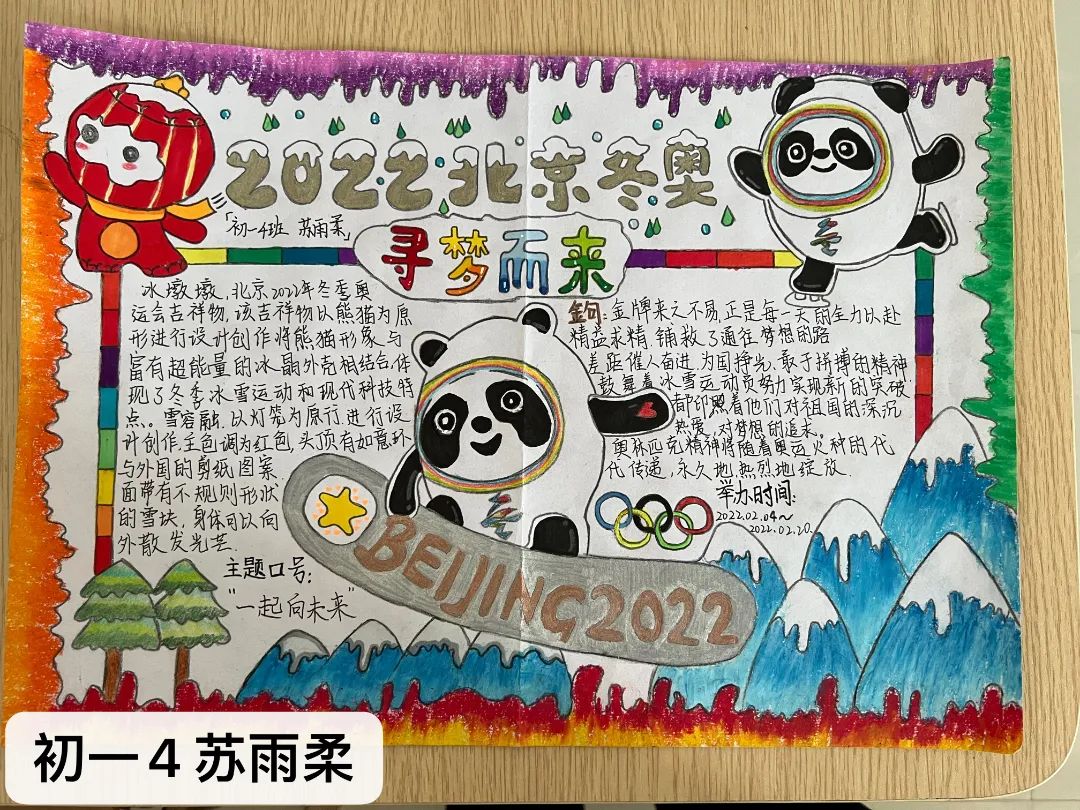 2022北京冬奥
「初一4班 苏雨柔」
寻梦而来
冰墩墩,北京2022年冬季奥
运会吉祥物,该吉祥物以熊猫为原
形进行设计创作将熊猫形象与
富有超能量的冰晶外壳相结合,体
现了冬季冰雪运动和现代科技特
点。雪容融,以灯笼为原行,进行设
计创作,主色调为红色,头顶有如意环
与外围的剪纸图案
面带有不规则形状
的雪块,身体可以向
外散发光芒.
主题口号:
"一起向未来"
金句:金牌来之不易,正是每一天的全力以赴
精益求精,铺救了通往梦想的路
差距催人奋进,为国挣光、敢于拼搏的精神
鼓舞着冰雪运动员努力实现新的突破
都印照着他们对祖国的深沉
热爱,对梦想的追求。
奥林匹克精神将随着奥运火种的代
代传递,永久地,热烈地绽放.
举办时间:
2022.02.04~
2022.02.20.
BEIJING2022
初一4 苏雨柔